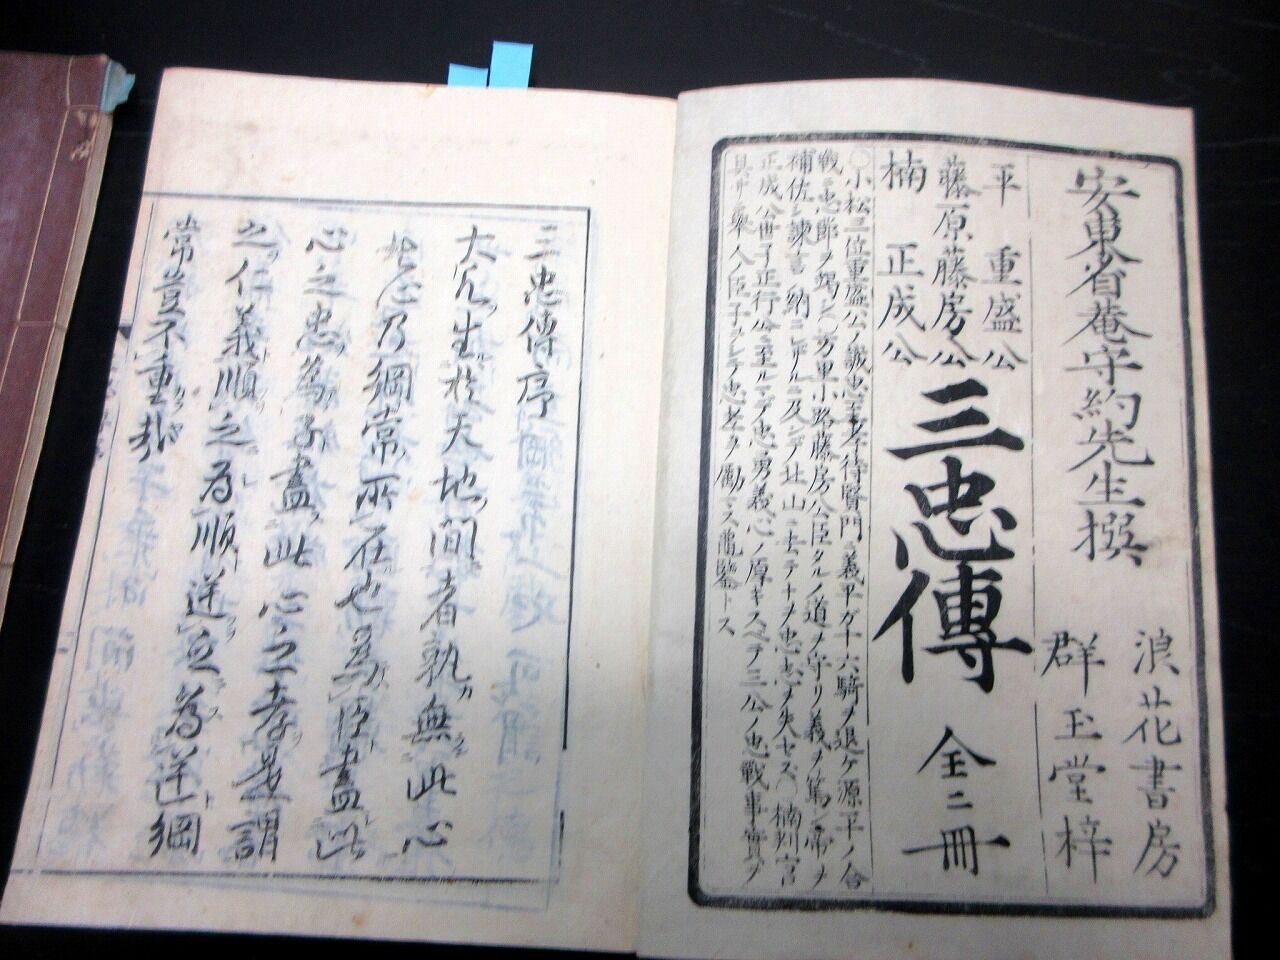 安東省菴守約先生撰
浪花書房
群玉堂梓
平重盛公
藤原藤房公
楠正成公
三忠傳
全二冊
〇小松三位重盛公ノ誠忠至孝待賢門ニ義平ガ十六騎ヲ退ケ源平ノ合
戦ニ忠節ヲ竭シ〇万里小路藤房公臣タルノ道ヲ守リ義ヲ篤シ帝ヲ
補佐シ諫言納ニレザルニ及ンデ北山ニ去テナヲ忠志ヲ失セズ〇楠判官
正成公世子正行公ニ至ルマデ忠勇義心ノ厚キスベテ三公ノ忠戦事實ヲ
具リ挙人ノ臣子タルシテ忠孝ヲ勵マス龜鑒トス
三忠傳序
大凡生於天地間者孰無此心
此心乃綱常所在也為臣盡此
心之忠為子盡此心之孝是謂
之仁義順之為順逆之為逆綱
常豈不重哉